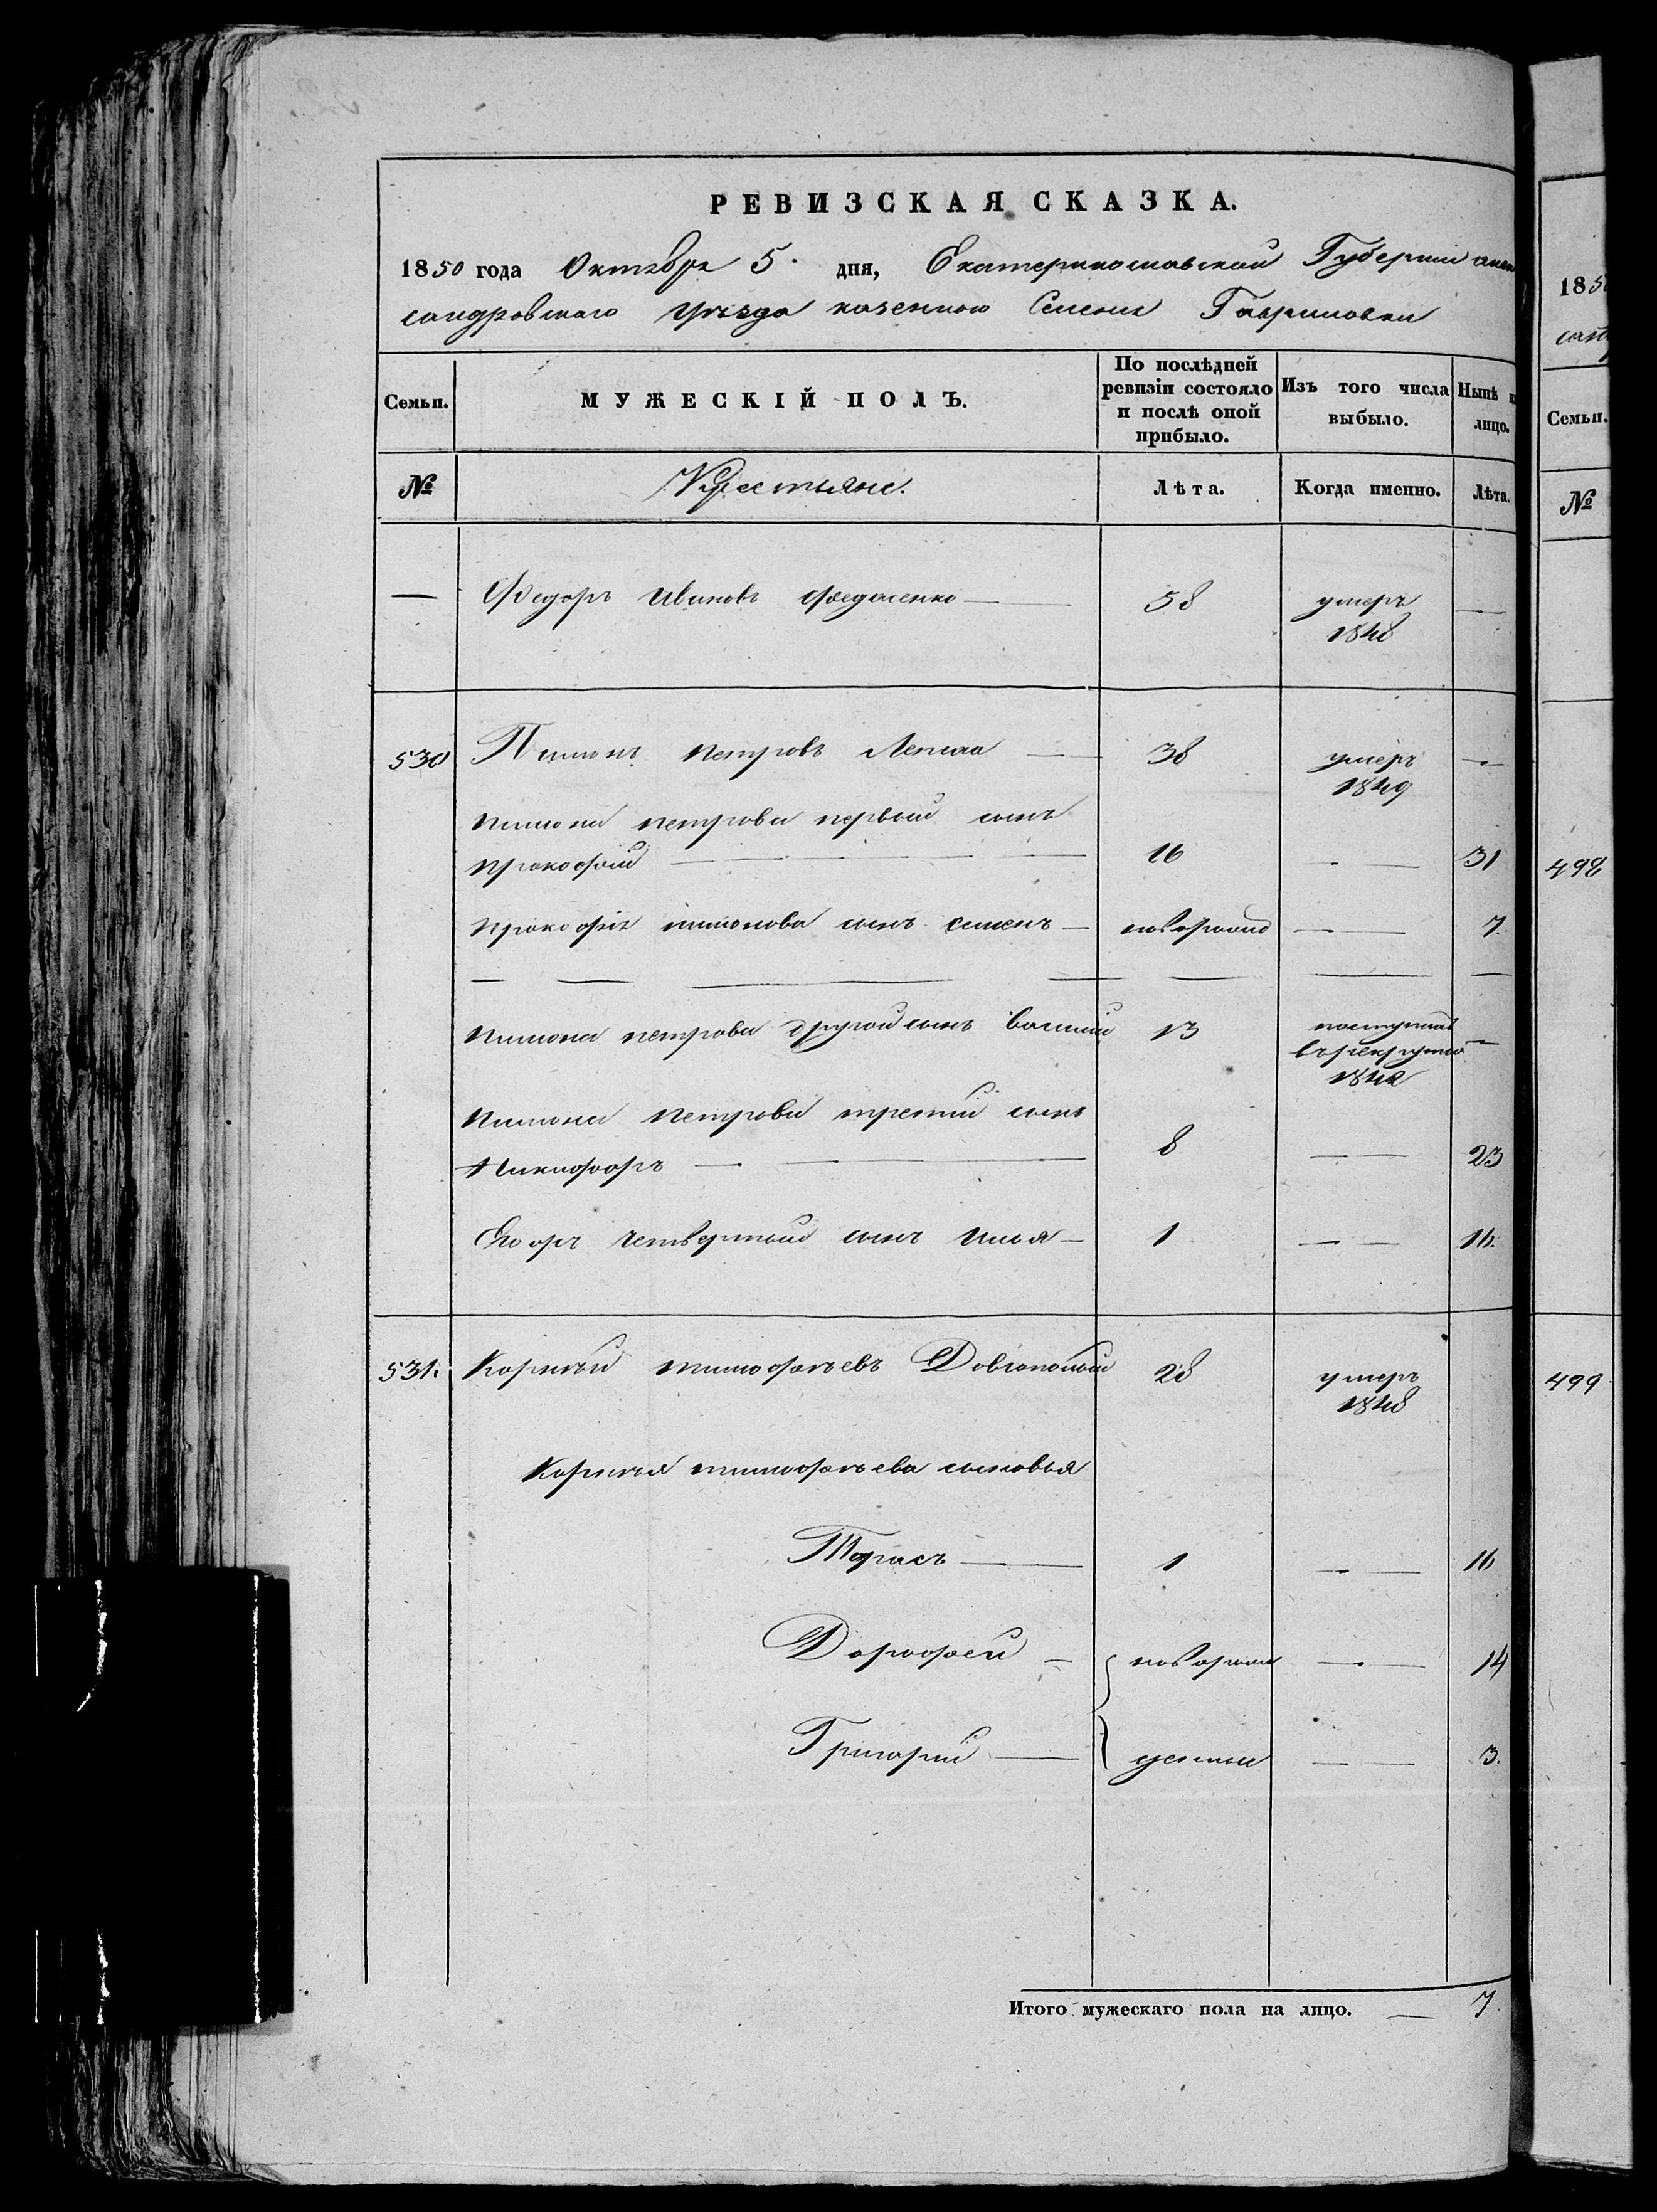 РЕВИЗСКАЯ СКАЗКА.
1850 года Октября 5. дня, Екатеринославской Губернии алек
сандровскаго уѣзда казенного Селения Гавриловки
Семьи. МУЖЕСКІЙ ПОЛЪ. По послѣдней ревизіи состояло и послѣ оной прибыло. Изъ того числа выбыло. Нынѣ н лицо.
№ Крестьяне. Лѣта. Когда именно. Лѣта.
— Федоръ Ивановъ Федосенко — 58 умеръ 1848 —
530 Пимонъ петровъ — 38 умеръ 1849 —
пимона петрова первый сынъ
прокофий — 16 — 31
прокофія пимонова сынъ семенъ — новорожд — 7.
пимона петрова другой сынъ 13 поступилъ
въ рекруты —
1842
пимона петрова третий сынъ
Никифоръ — 8 — 23
Егоръ четвертый сынъ Илья — 1 — 16.
531. Корнѣй тимофѣевъ Довгополый 28 умеръ
1848
Корнѣя тимофѣева сыновья
Тарасъ — 1 — 16
Дорофей — новорож — 14
Григорий — денные — 3.
Итого мужескаго пола на лицо. — 7.
1850
сан
Семьи.
№
498
499